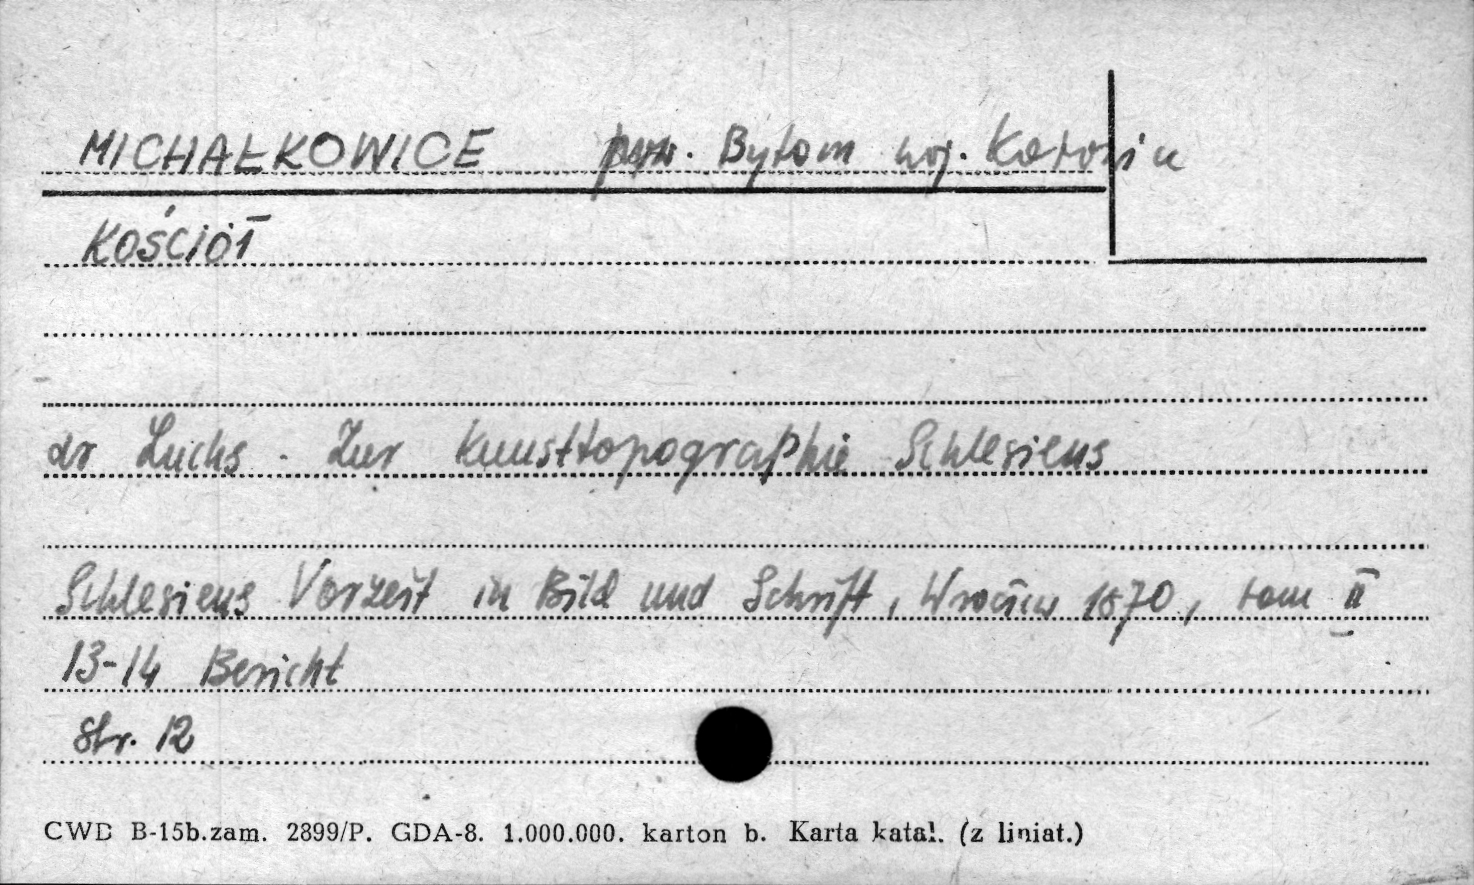 MICHAŁKOWICE pow. Bytom woj. Katowice
KOŚCIÓŁ
dr Luchs - Zur Kunsttopographie Schlesiens
Schlesiens Vorzeit in Bild und Schrift, Wrocław 1870, tom II
13-14 Bericht
str. 12
CWD B-15b.zam. 2899/P. GDA-8. 1.000.000. karton b. Karta katal. (z liniat.)